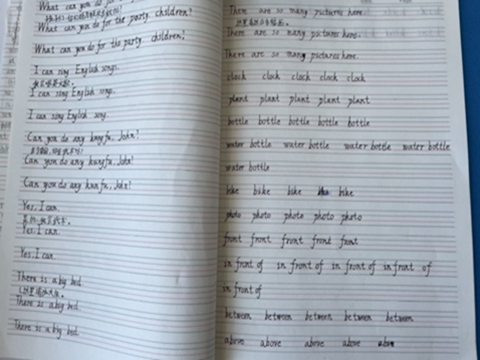 What can you do for
What can you do for the party, children?
What can you do for the party, children?
I can sing English songs.
I can sing English songs.
I can sing English song.
Can you do any kungfu, John?
Can you do any kungfu, John?
Can you do any kunfu, John?
Yes, I can.
Yes, I can.
Yes, I can.
There is a big bed.
There is a big bed.
There is a big bed.
There are so many pictures here.
There are so many pictures here.
There are so many pictures here.
clock clock clock clock clock
plant plant plant plant plant
bottle bottle bottle bottle bottle
water bottle water bottle water bottle water bottle
water bottle
bike bike bike bike
photo photo photo photo photo
front front front front front
in front of in front of in front of in front of
in front of
between between between between between
above above above above above